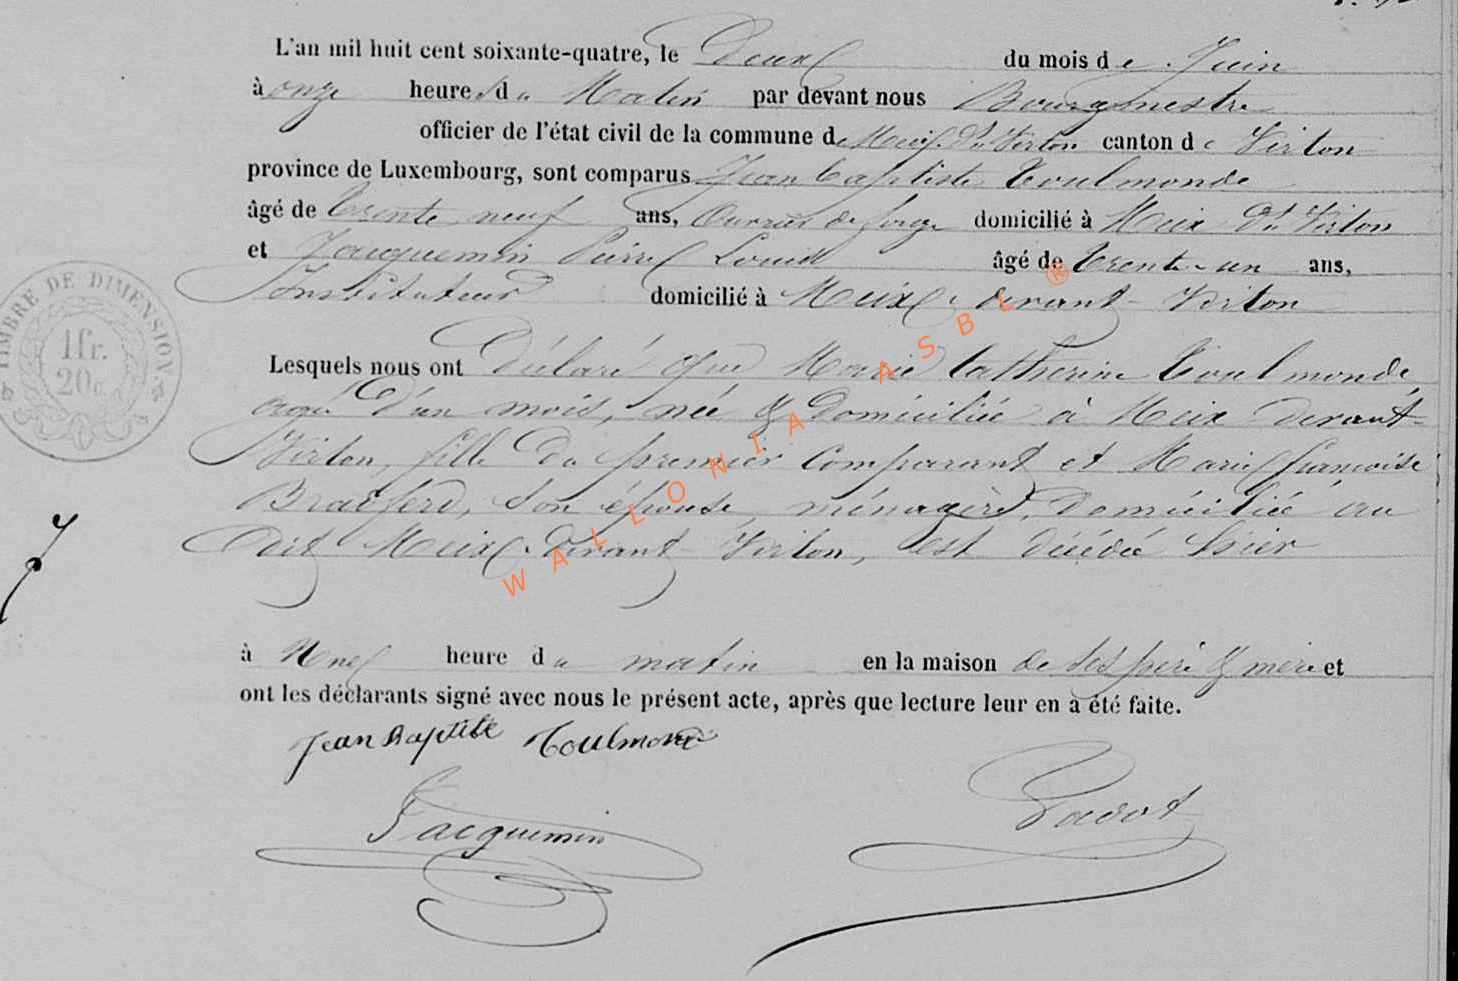 L'an mil huit cent soixante-quatre, le Deux du mois de Juin
à onze heures du Matin par devant nous Bourgmestre
officier de l'état civil de la commune de Meix Dt Virton canton de Virton
province de Luxembourg, sont comparus Jean Baptiste Toulmonde
âgé de Trente neuf ans, Ouvrier de forge domicilié à Meix Dt Virton
et Jacquemin Pierre Louis âgé de Trente un ans,
Instituteur domicilié à Meix devant Virton
TIMBRE DE DIMENSION
1 fr.
20 c.
Lesquels nous ont Déclaré que Marie Catherine Toulmonde
agée d'un mois, née & Domiciliée à Meix devant
Virton, fille du premier Comparant et Marie françoise
son épouse, ménagère, Domiciliée au
dit Meix devant Virton, est décédée hier
à Une heure du matin en la maison de ses père & mère et
ont les déclarants signé avec nous le présent acte, après que lecture leur en a été faite.
Jean Baptiste Toulmonde
Jacquemin
WALLONIA ASBL ®